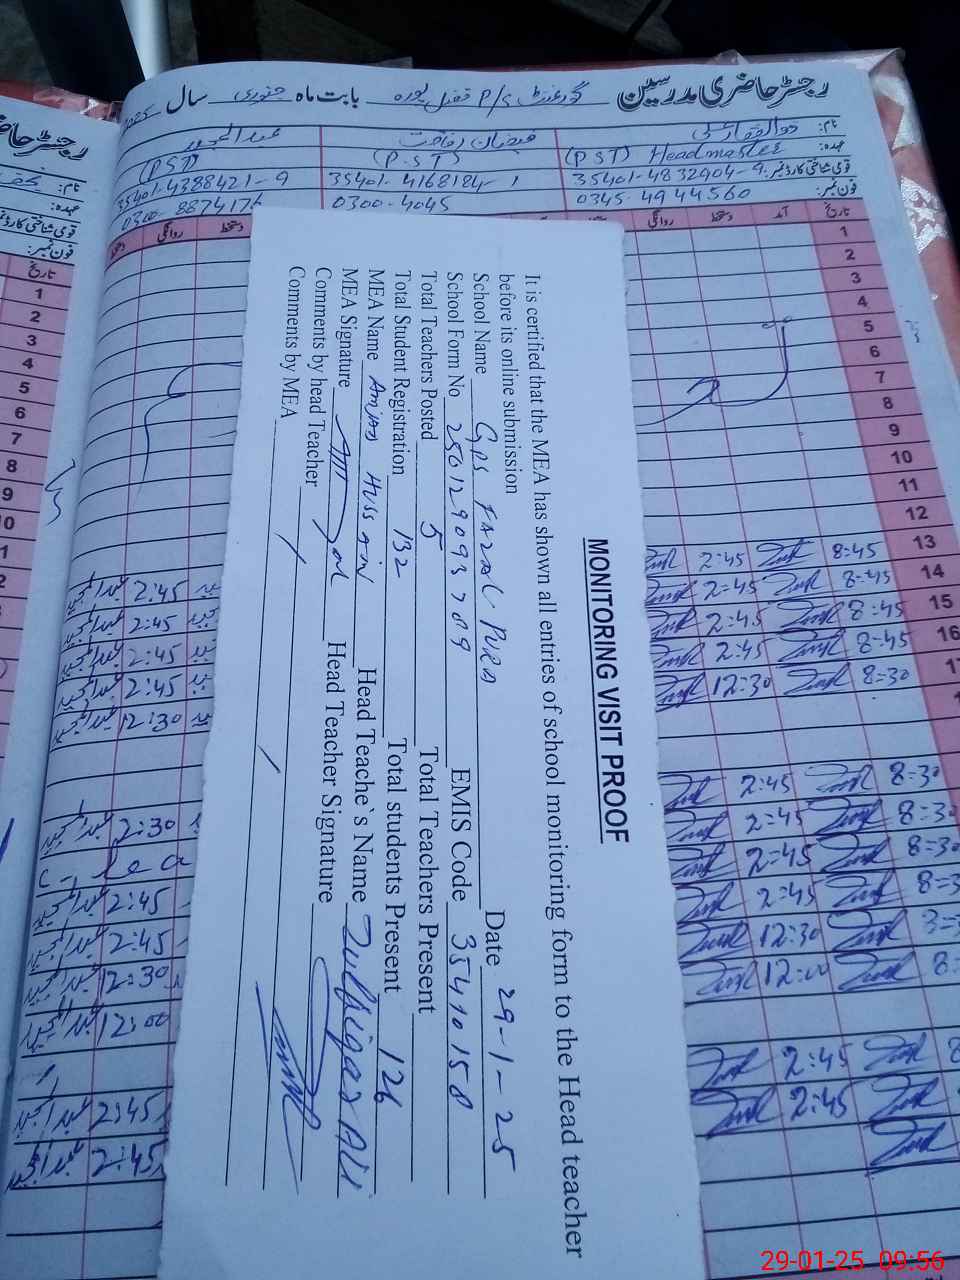 رجسٹر حاضری مدرسین گورنمنٹ P/S فضل پورہ بابت ماہ جنوری سال 2025
نام: ذوالفقار علی
فیضان رفاقت
عبدالمجید
عہدہ: (PST) Headmaster
(P.ST)
(PST)
قومی شناختی کارڈ نمبر: 35401-4832904-9
35401-4168184-1
35401-4388421-9
فون نمبر: 0345-4944560
0300-4045
0300-8874176
تاریخ آمد دستخط روانگی دستخط روانگی دستخط
1
2
3
4
5
6
7
8
9
10
11
12
13 8:45 2:45
14 8:45 2:45 2:45
15 8:45 2:45 2:45
16 8:45 2:45 2:45
8:30 12:30 2:45
12:30
8:30 2:45
8:30 2:45 2:30
8:30 2:45
2:45 2:45
12:30 2:45
12:00 12:30
12:00
2:45
2:45 2:45
2:45
MONITORING VISIT PROOF
It is certified that the MEA has shown all entries of school monitoring form to the Head teacher
before its online submission
Date 29-1-25
School Name GPS FAZAL PURA
School Form No 250129093789 EMIS Code 35410158
Total Teachers Posted 5 Total Teachers Present
Total Student Registration 132 Total students Present 126
MEA Name Amjad Hussain Head Teache`s Name Zulfiqar Ali
MEA Signature Head Teacher Signature
Comments by head Teacher
Comments by MEA
رجسٹر حاضر
نام:
عہدہ:
قومی شناختی کارڈ
فون نمبر:
تاریخ
1
2
3
4
5
6
7
8
9
10
29-01-25 09:56